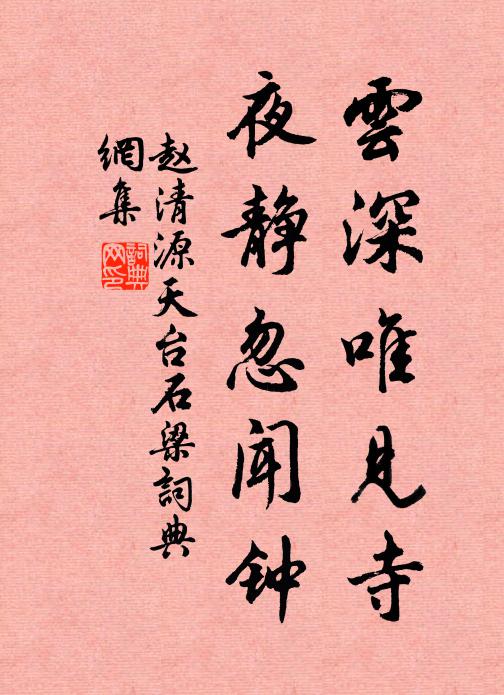 雲深唯見寺
夜静忽闻钟
赵清源天台石梁詞典
網集
詞典
网印